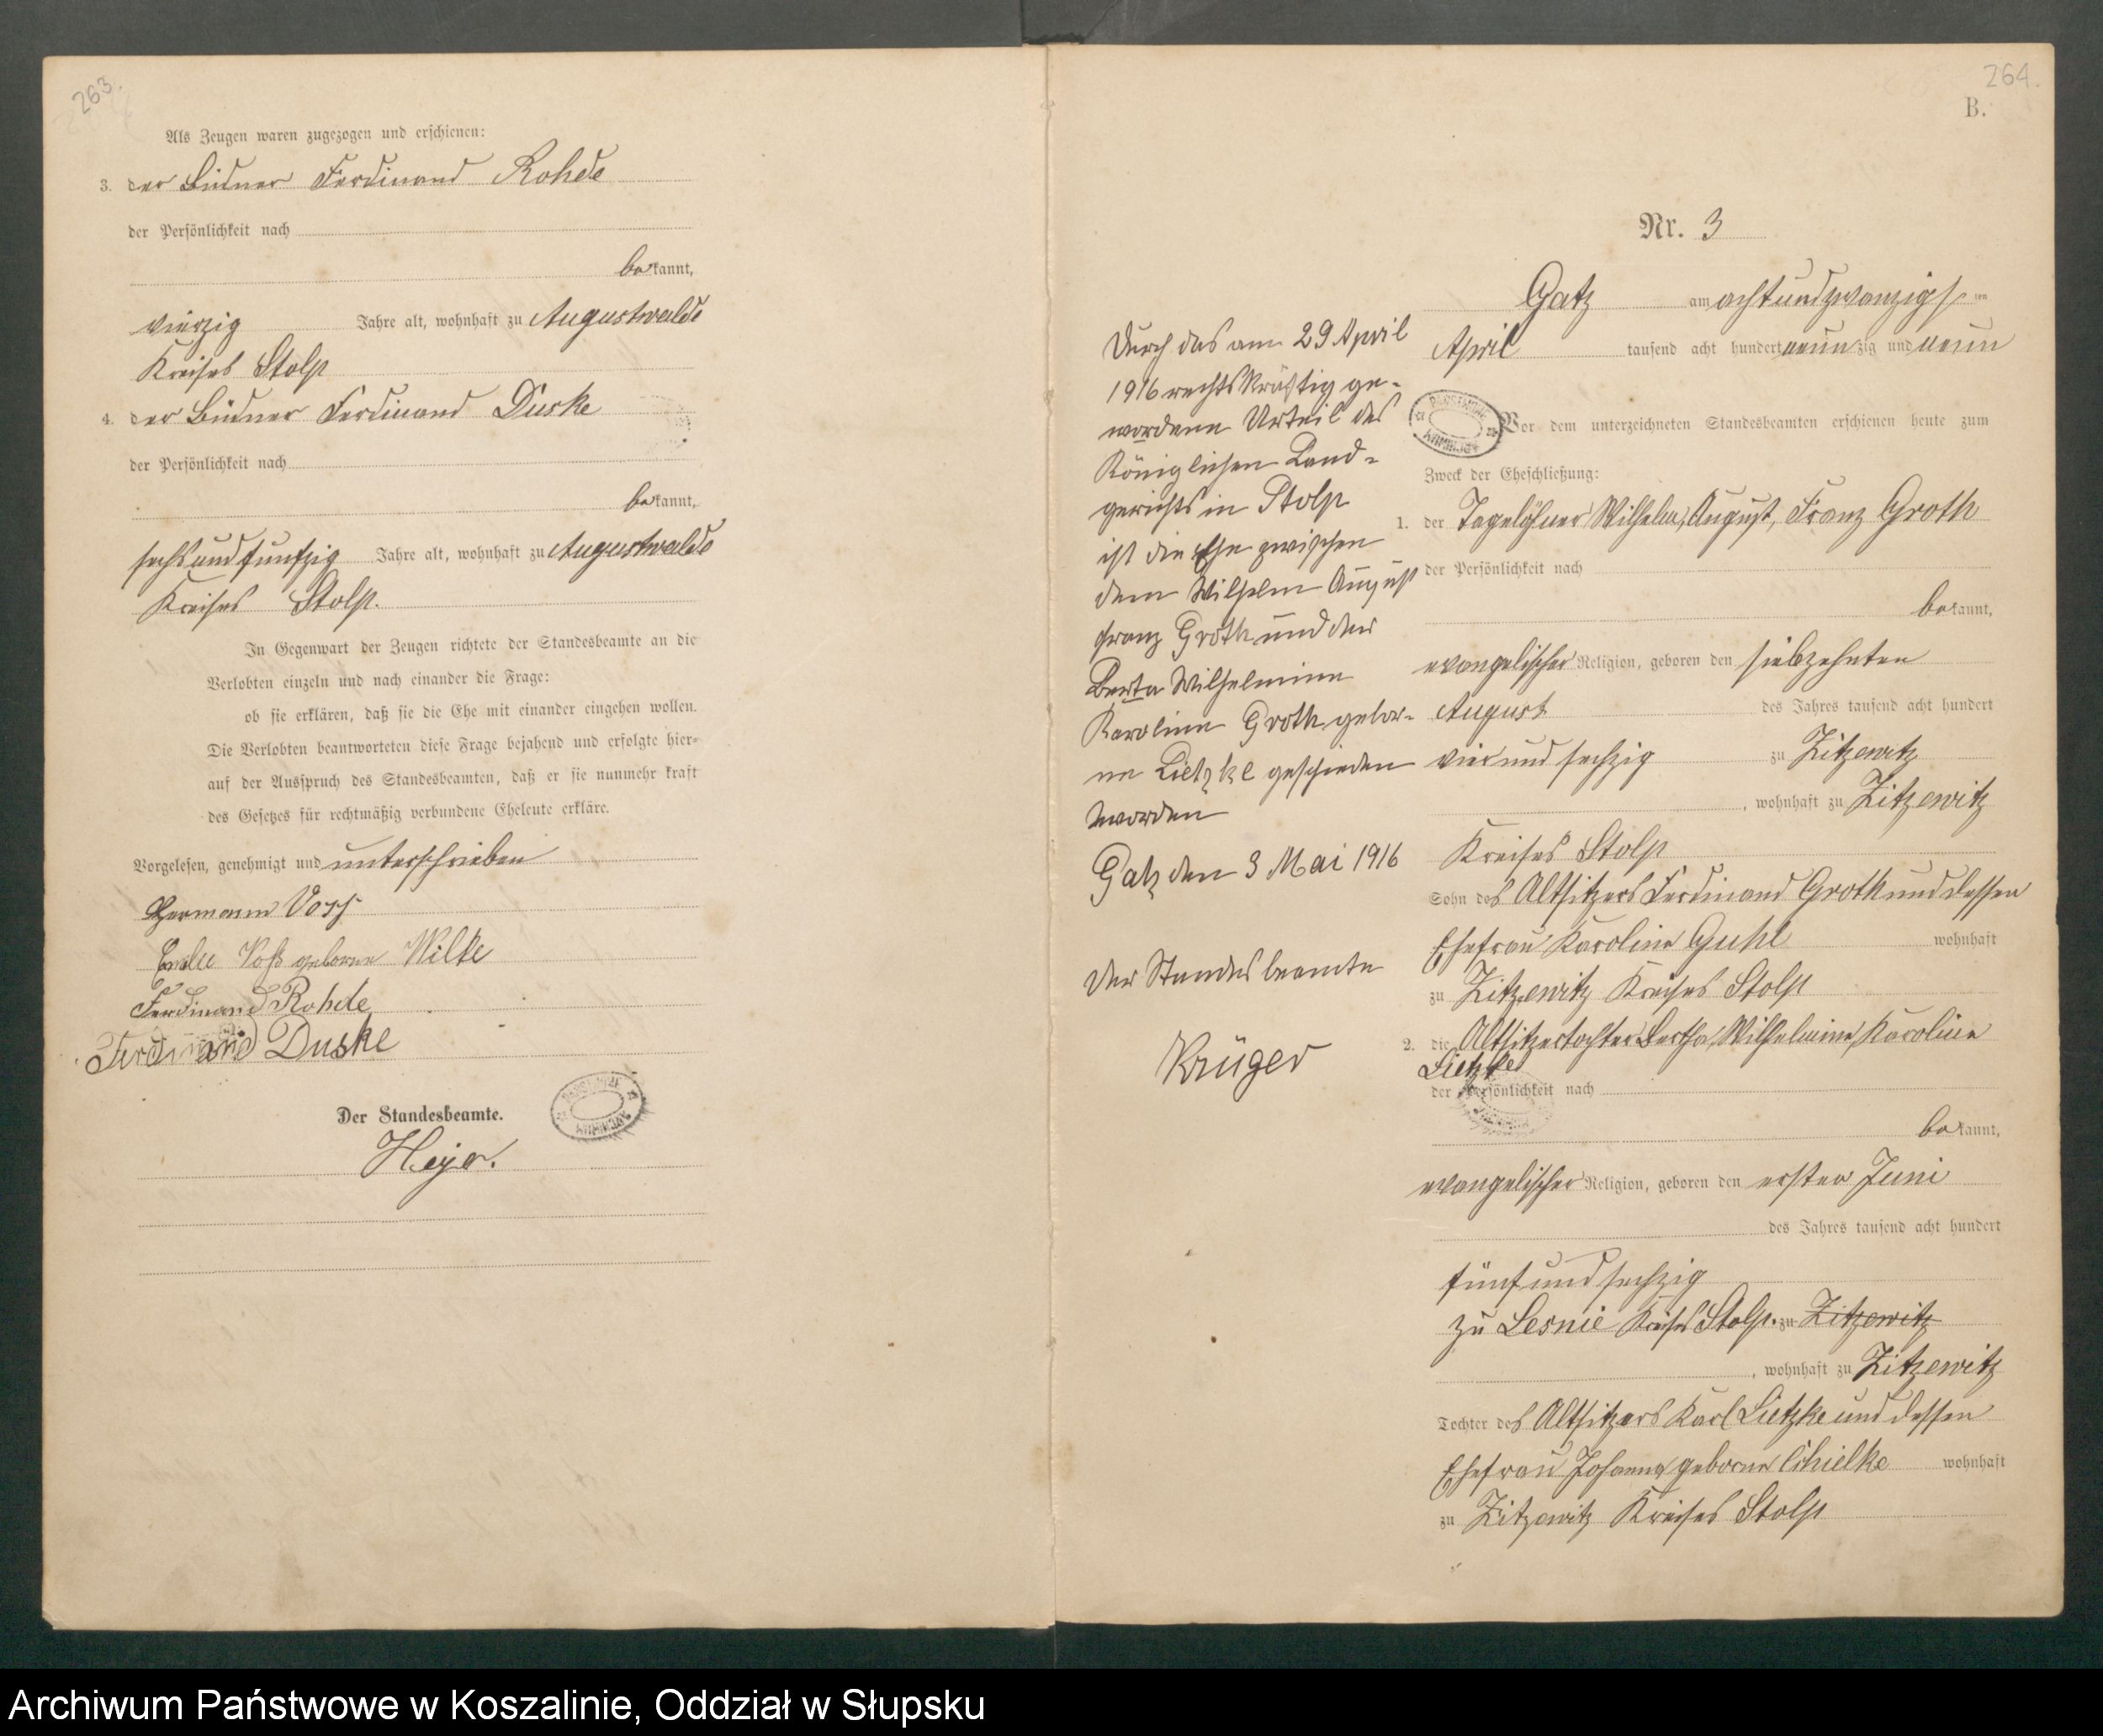 263.
Als Zeugen waren zugezogen und erschienen:
3. der Büdner Ferdinand Rohde
der Persönlichkeit nach
bekannt,
vierzig Jahre alt, wohnhaft zu Augustwalde
Kreises Stolp
4. der Büdner Ferdinand Duske
der Persönlichkeit nach
bekannt,
sechsundfünfzig Jahre alt, wohnhaft zu Augustwalde
Kreises Stolp.
In Gegenwart der Zeugen richtete der Standesbeamte an die
Verlobten einzeln und nach einander die Frage:
ob sie erklären, daß sie die Ehe mit einander eingehen wollen.
Die Verlobten beantworteten diese Frage bejahend und erfolgte hier-
auf der Ausspruch des Standesbeamten, daß er sie nunmehr kraft
des Gesetzes für rechtmäßig verbundene Eheleute erkläre.
Vorgelesen, genehmigt und unterschrieben
Hermann Voss
Voß geborene Wilke
Ferdinand Rohde
Ferdinand Duske
Der Standesbeamte.
Heyer.
264.
B.
Nr. 3
Gatz am achtundzwanzigsten
April tausend acht hundert neunzig und neun
Vor dem unterzeichneten Standesbeamten erschienen heute zum
Zweck der Eheschließung:
1. der Tagelöhner Wilhelm, August, Franz Groth
der Persönlichkeit nach
bekannt,
evangelischer Religion, geboren den siebzehnten
August des Jahres tausend acht hundert
vierundsechzig zu Zitzewitz
, wohnhaft zu Zitzewitz
Kreises Stolp
Sohn des Altsitzers Ferdinand Groth und dessen
Ehefrau Karoline Guhl wohnhaft
zu Zitzewitz Kreises Stolp
2. die Altsitzertochter Bertha, Wilhelmine, Karoline
Lietzke
der Persönlichkeit nach
bekannt,
evangelischer Religion, geboren den ersten Juni
des Jahres tausend acht hundert
fünfundsechzig
zu Lesnie Kreises Stolp. zu Zitzewitz
, wohnhaft zu Zitzewitz
Tochter des Altsitzers Karl Lietzke und dessen
Ehefrau Johanna geborne wohnhaft
zu Zitzewitz Kreises Stolp
Durch das am 29 April
1916 rechtskräftig ge-
wordene Urteil des
Königlichen Land-
gerichts in Stolp
ist die Ehe zwischen
dem Wilhelm August
Franz Groth und der
Berta Wilhelmine
Karoline Groth gebor-
ne Lietzke geschieden
worden
Gatz den 3 Mai 1916
Der Standesbeamte
Krüger
Archiwum Państwowe w Koszalinie, Oddział w Słupsku